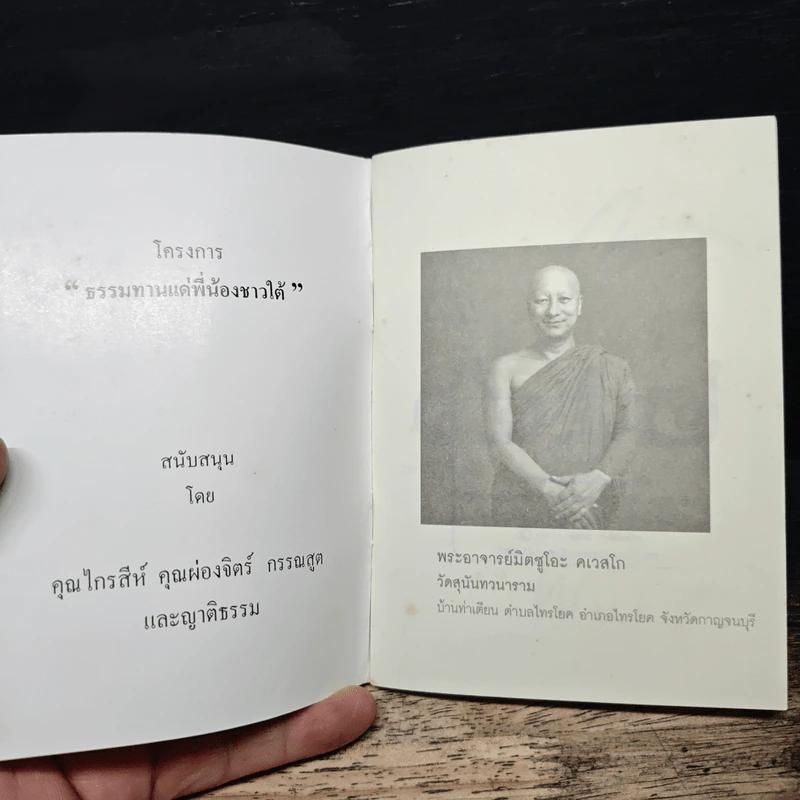 โครงการ
“ ธรรมทานแด่พี่น้องชาวใต้ ”
สนับสนุน
โดย
คุณไกรสีห์ คุณผ่องจิตร์ กรรณสูต
และญาติธรรม
พระอาจารย์มิตซูโอะ คเวสโก
วัดสุนันทวนาราม
บ้านท่าเตียน ตำบลไทรโยค อำเภอไทรโยค จังหวัดกาญจนบุรี